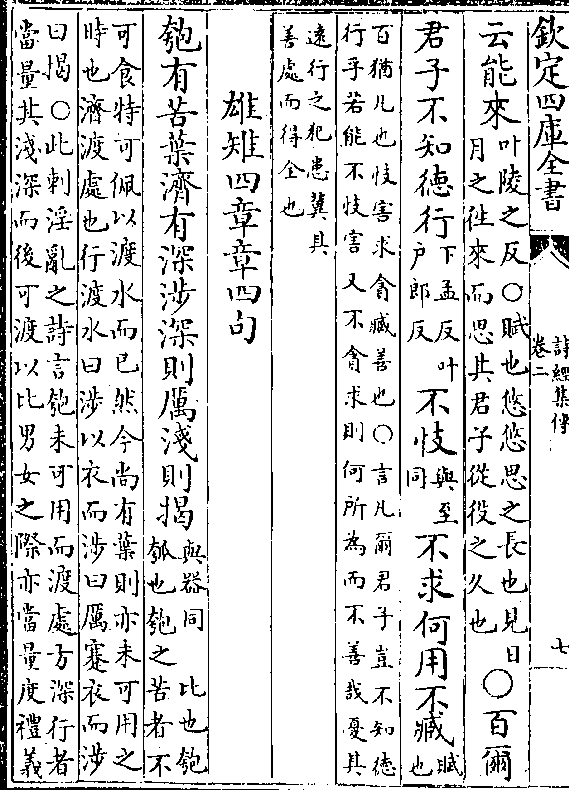 欽定四庫全書
詩經集傳
卷二
七
云能來叶陵之反○賦也悠悠思之長也見日月之徃來而思其君子從役之久也○百爾
君子不知德行下孟反叶户郎反不忮與至同不求何用不臧賦也
百猶凡也忮害求貪臧善也○言凡爾君子豈不知德行乎若能不忮害又不貪求則何所為而不善哉憂其
遠行之犯患冀其善處而得全也
雄雉四章章四句
匏有苦葉濟有深涉深則厲淺則揭與器同 比也匏瓠也匏之苦者不
可食特可佩以渡水而已然今尚有葉則亦未可用之時也濟渡處也行渡水曰涉以衣而涉曰厲褰衣而涉
曰揭○此刺淫亂之詩言匏未可用而渡處方深行者當量其淺深而後可渡以比男女之際亦當量度禮義